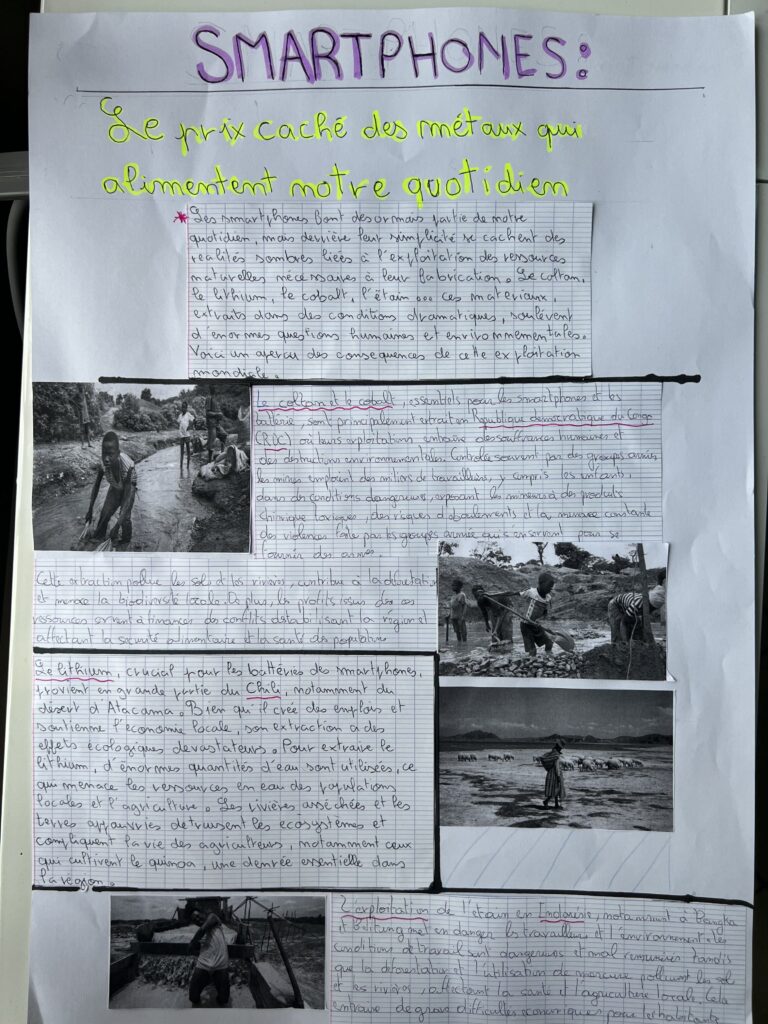 SMARTPHONES:
Le prix caché des métaux qui
alimentent notre quotidien
* Les smartphones font desormais partie de notre
quotidien, mais derrière leur simplicité se cachent des
réalités sombres liées à l'exploitation des ressources
naturelles nécessaires à leur fabrication. Le coltan,
le lithium, le cobalt, l'étain... ces materiaux,
extraits dans des conditions dramatiques, soulèvent
d'énormes questions humaines et environnementales.
Voici un aperçu des consequences de cette exploitation
mondiale.
Le coltan et le cobalt, essentiels pour les smartphones et les
batterie, sont principalement extrait en Republique democratique du Congo
(RDC) où leurs exploitations entraine des souffrances humaines et
des destructions environnementales. Contrôlée souvent par des groupes armées
les mines emploient des milliers de travailleurs, y compris les enfants,
dans des conditions dangereuses, exposant les mineurs à des produits
chimique toxiques, des risques d'éboulements et la menace constante
des violences faite par les groupes armée qui s'en servent pour se
fournir des armes.
Cette extraction pollue les sols et les rivières, contribue à la déforestation
et menace la biodiversité locale. De plus, les profits issus de ces
ressources servent à financer des conflits déstabilisant la région et
affectant la sécurité alimentaire et la santé des populations
Le lithium, crucial pour les battéries des smartphones,
provient en grande partie du Chili, notamment du
désert d'Atacama. Bien qu'il crée des emplois et
soutienne l'économie locale, son extraction a des
effets écologiques dévastateurs. Pour extraire le
lithium, d'énormes quantités d'eau sont utilisées, ce
qui menace les ressources en eau des populations
locales et l'agriculture. Les rivières asséchées et les
terres appauvries detruisent les ecosystèmes et
compliquent la vie des agriculteurs, notamment ceux
qui cultivent le quinoa, une denrée essentielle dans
la région.
L'exploitation de l'étain en Indonésie, notamment à Bangka
et Belitung met en danger les travailleurs et l'environnement. Les
conditions de travail sont dangereuses et mal rémunérés tandis
que la déforestation et l'utilisation de mercure polluent les sol
et les rivières, affectant la santé et l'agriculture locale. Cela
entraine de grave difficultés économiques pour les habitants